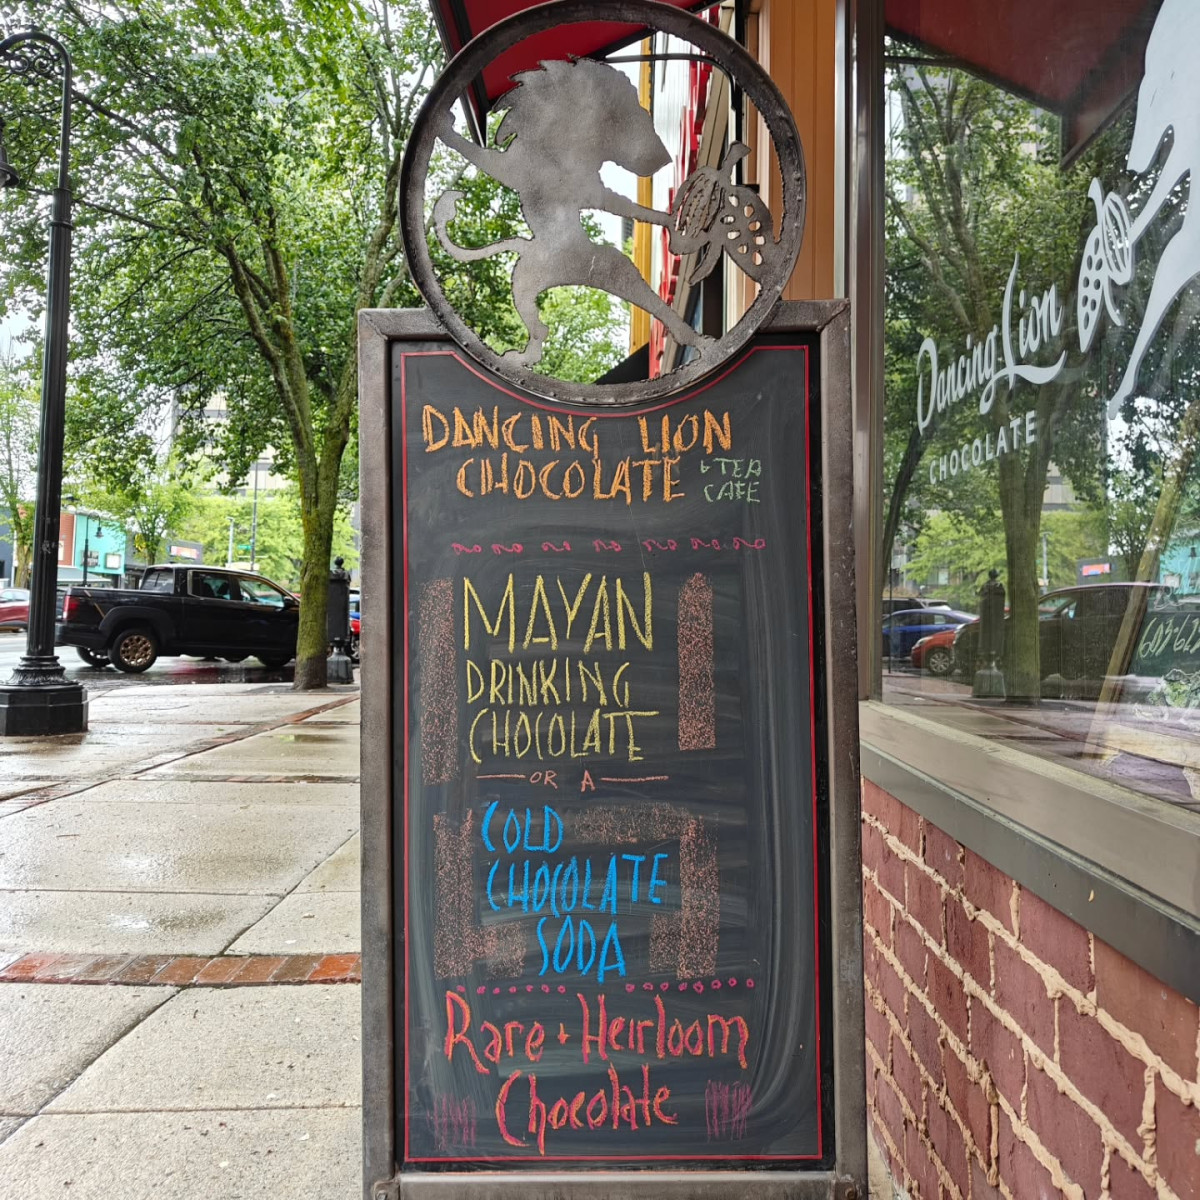 DANCING LION
CHOCOLATE + TEA
CAFE
MAYAN
DRINKING
CHOCOLATE
OR A
COLD
CHOCOLATE
SODA
Rare + Heirloom
Chocolate
Dancing Lion
CHOCOLATE